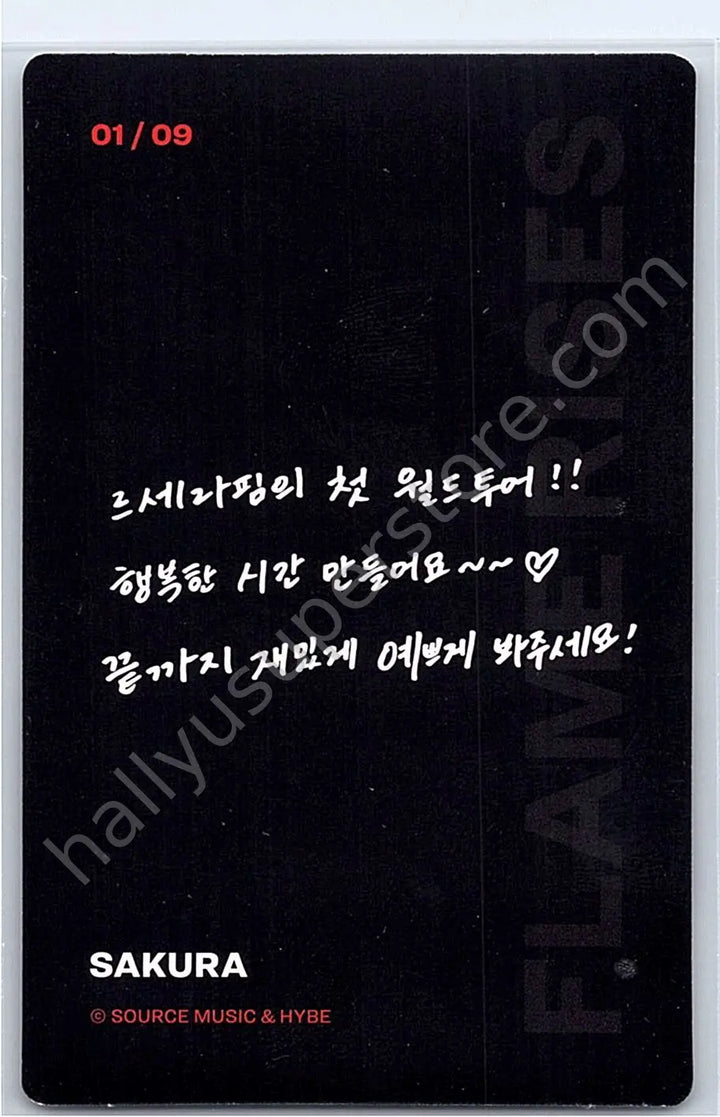 01 / 09
르세라핌의 첫 월드투어!!
행복한 시간 만들어요~~♡
끝까지 재밌게 예쁘게 봐주세요!
FLAME RISES
SAKURA
© SOURCE MUSIC & HYBE
hallyusuperstore.com